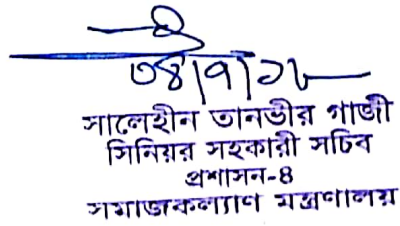 সালেহীন তানভীর গাজী
সিনিয়র সহকারী সচিব
প্রশাসন-৪
সমাজকল্যাণ মন্ত্রণালয়